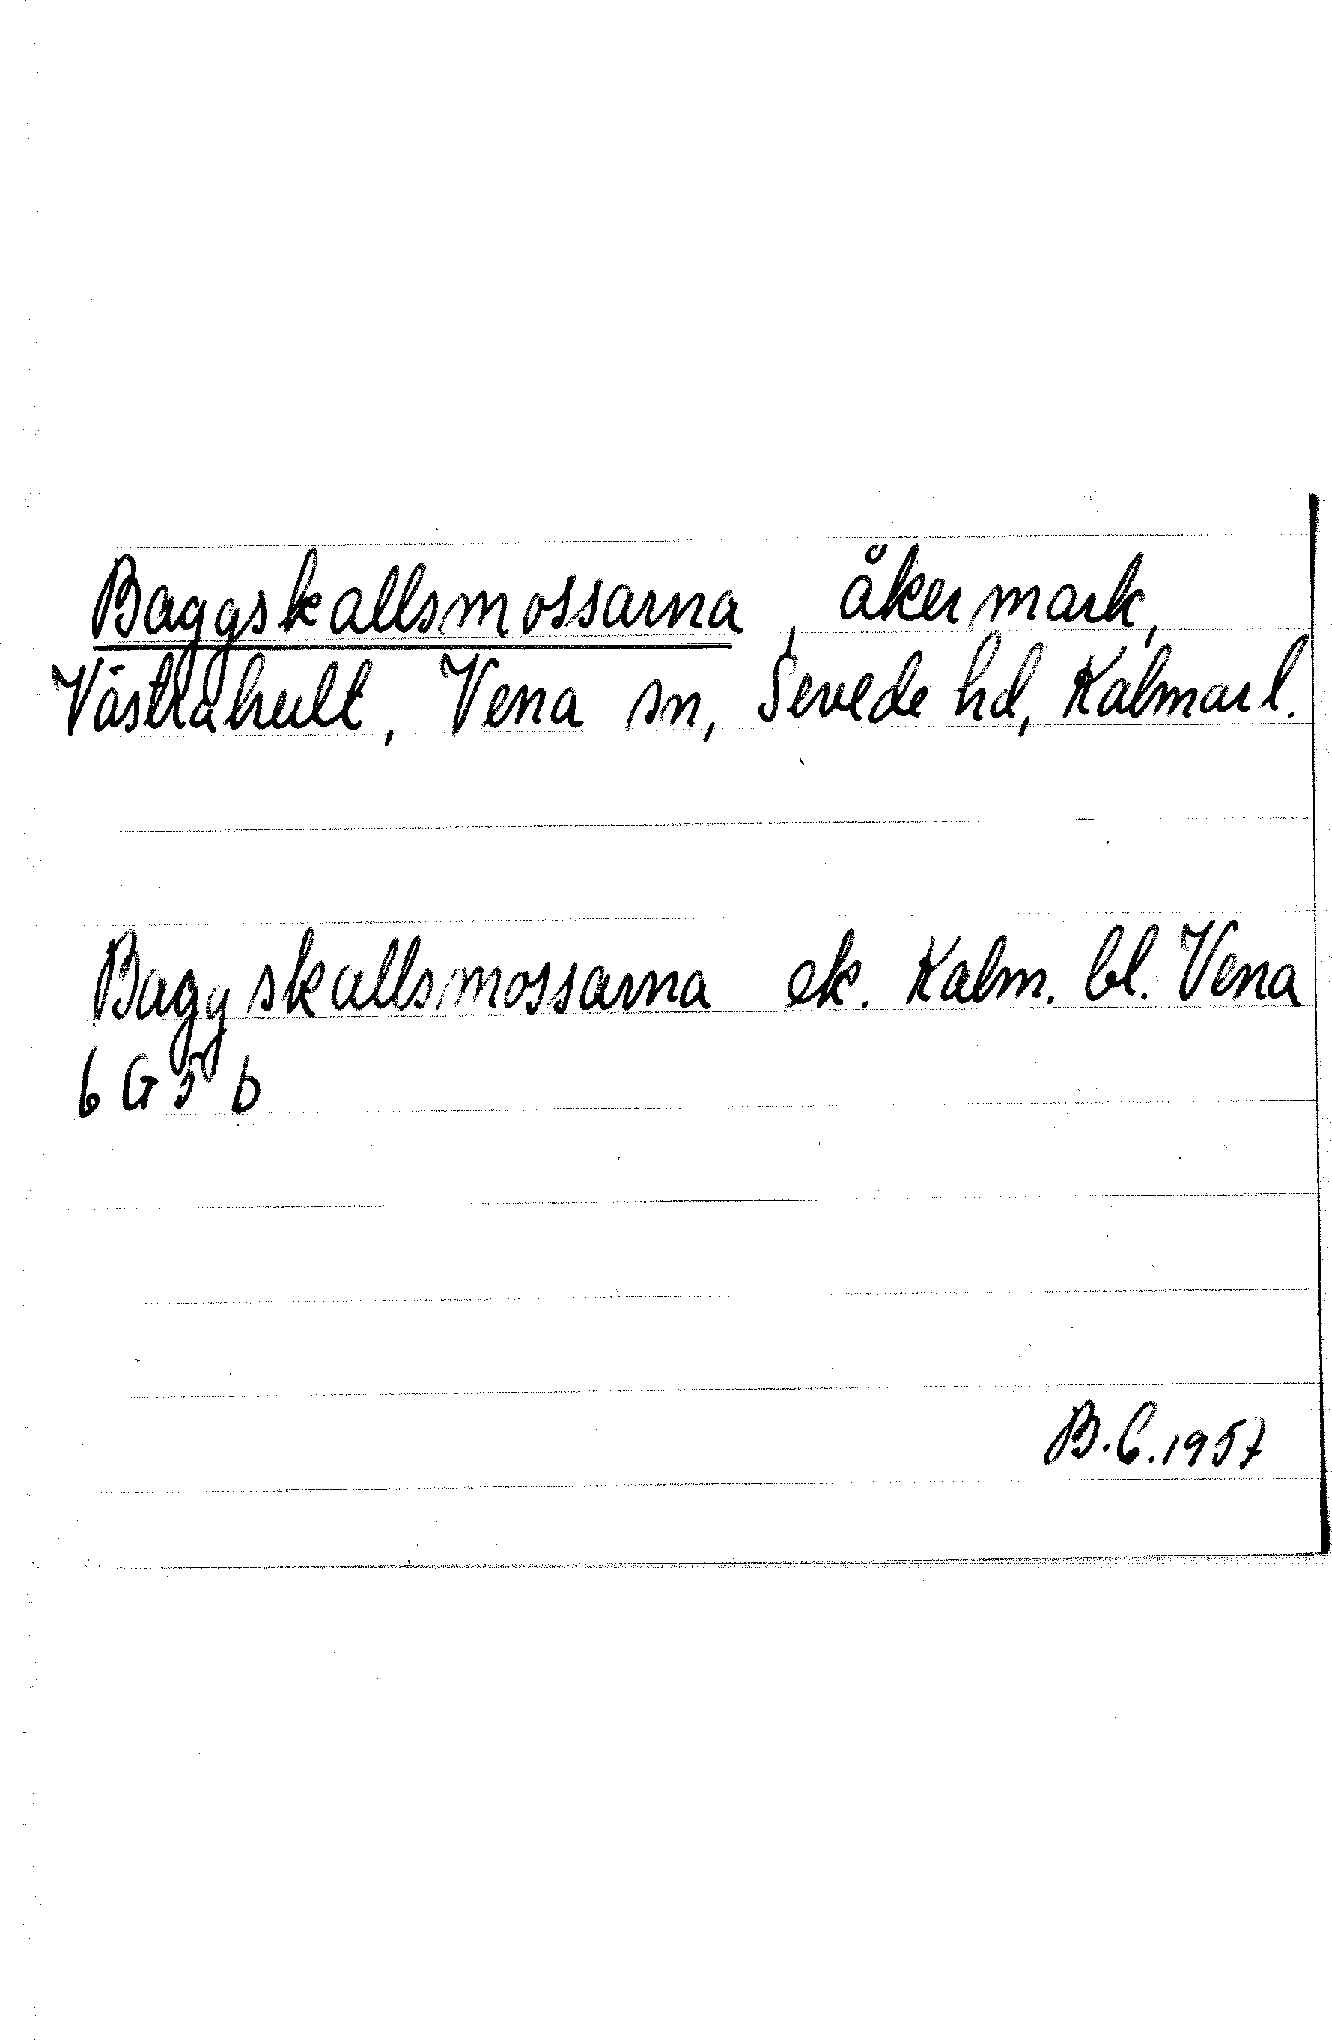 Baggskallsmossarna, åkermark,
Västrahult, Vena sn, Sevede hd, Kalmar l.
Baggskallsmossarna ek. Kalm. bl. Vena
6 G 5 b
B.C.1957